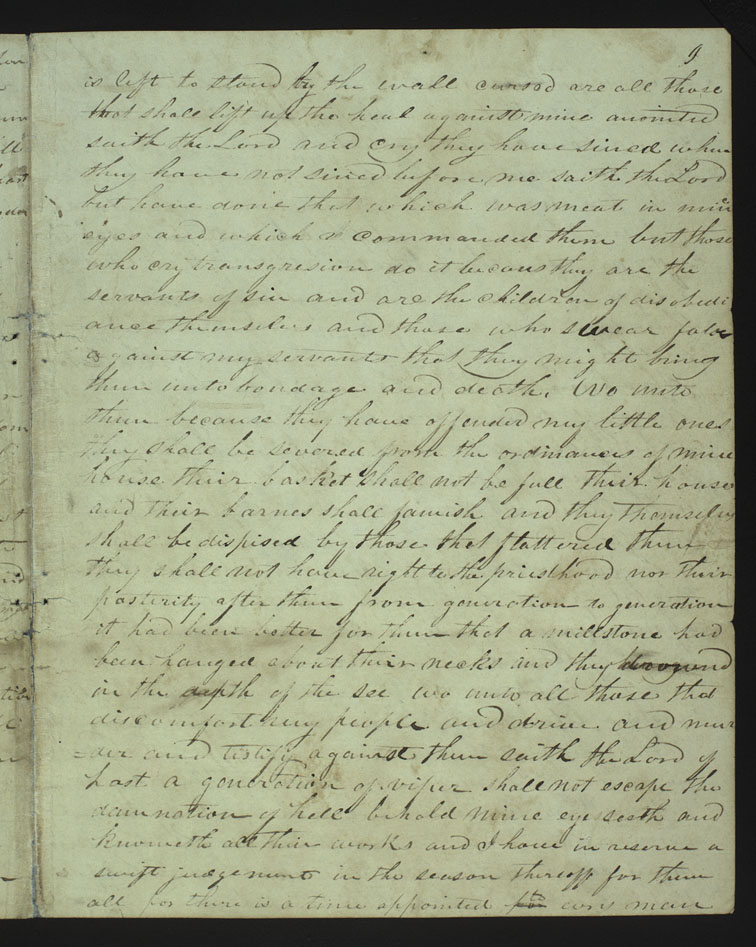 9
is left to stand by the wall cursed are all those
that shall lift up the heal against mine anointed
saith the Lord and cry they have sined when
they have not sined before me saith the Lord
but have done that which was meat in mine
eyes and which I commanded them but those
who cry transgresion do it becaus they are the
servants of sin and are the children of disobedi
ance themselvs and those who swear false
against my servants that they might bring
them unto bondage and death. Wo unto
them because they have offended my little ones
they shall be severed from the ordinances of mine
house their basket shall not be full their houses
and their barnes shall famish and they themselvs
shall be dispised by those that flattered them
they shall not have right to the priesthood nor their
posterity after them from generation to generation
it had been better for them that a millstone had
been hanged about their necks and they drownd
in the depth of the see wo unto all those that
discomfort my people and drive and mur
=der and testify against them saith the Lord of
host a generation of viper shall not escape the
damnation of hell behold mine eye seeth and
knoweth all their works and I have in reserve a
swift judgement in the season thereoff for them
all for there is a time appointed man